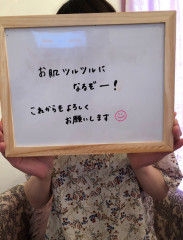 お肌ツルツルに
なるぞー！
これからもよろしく
お願いします